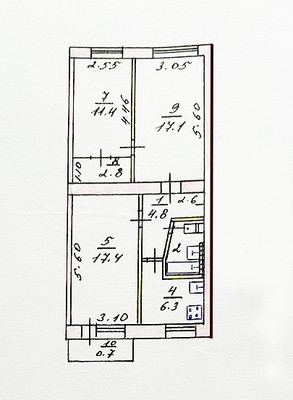 2.55 3.05
7
11.4
4.46
9
17.1
5.60
1.10
8
2.8
1
4.8
2.6
2
5
17.4
5.60
4
6.3
3.10
10
0.7